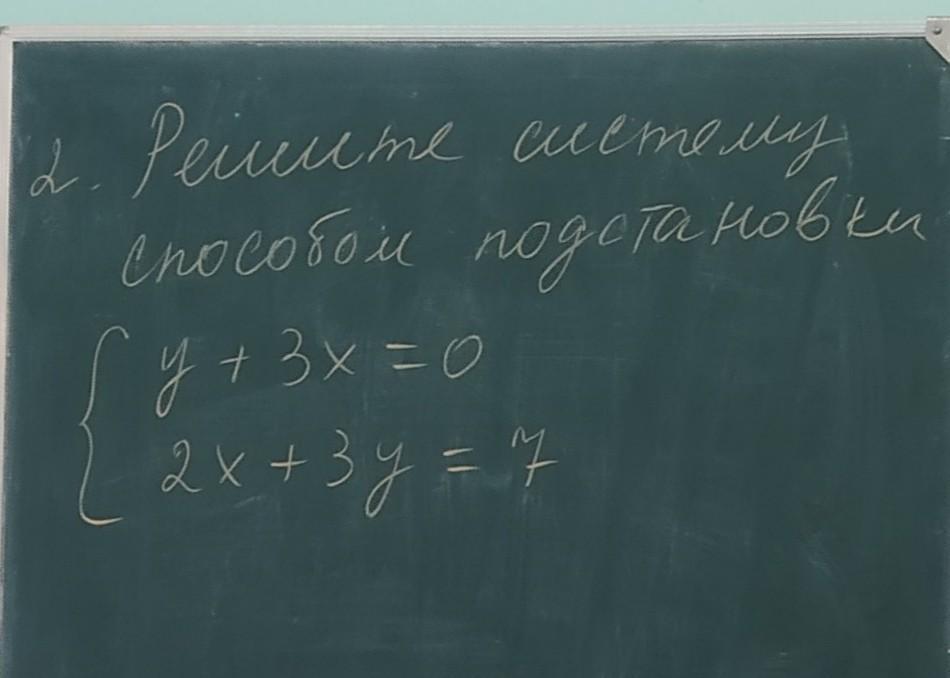 2. Решите систему
способом подстановки
y + 3x = 0
2x + 3y = 7